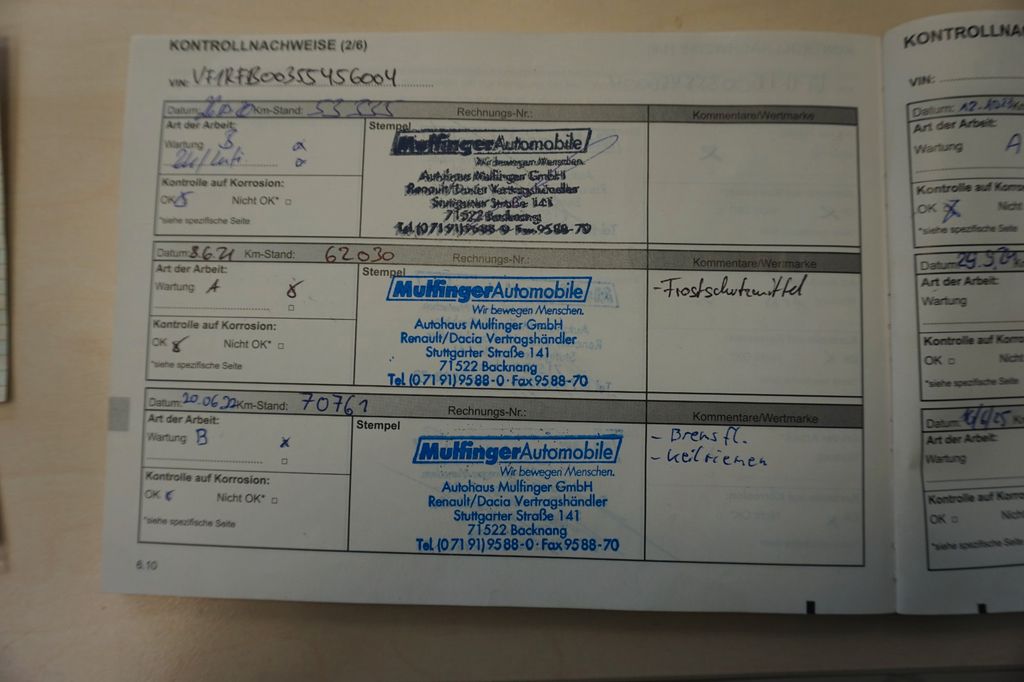 KONTROLLNACHWEISE (2/6)
VIN: VF1RFB00355456004
Datum: Km-Stand: 53 535 Rechnungs-Nr.: Kommentare/Wertmarke
Art der Arbeit:
Wartung B
Kontrolle auf Korrosion:
OK Nicht OK*
*siehe spezifische Seite
Stempel
Mulfinger Automobile
Wir bewegen Menschen.
Autohaus Mulfinger GmbH
Renault/Dacia Vertragshändler
Stuttgarter Straße 141
71522 Backnang
Tel. (0 71 91) 95 88-0 · Fax 95 88-70
Datum: 8.6.21 Km-Stand: 62 030 Rechnungs-Nr.: Kommentare/Wertmarke
Art der Arbeit:
Wartung A
Kontrolle auf Korrosion:
OK Nicht OK*
*siehe spezifische Seite
Stempel
Mulfinger Automobile
Wir bewegen Menschen.
Autohaus Mulfinger GmbH
Renault/Dacia Vertragshändler
Stuttgarter Straße 141
71522 Backnang
Tel. (0 71 91) 95 88-0 · Fax 95 88-70
-Frostschutzmittel
Datum: 20.06.22 Km-Stand: 70761 Rechnungs-Nr.: Kommentare/Wertmarke
Art der Arbeit:
Wartung B
Kontrolle auf Korrosion:
OK Nicht OK*
*siehe spezifische Seite
Stempel
Mulfinger Automobile
Wir bewegen Menschen.
Autohaus Mulfinger GmbH
Renault/Dacia Vertragshändler
Stuttgarter Straße 141
71522 Backnang
Tel. (0 71 91) 95 88-0 · Fax 95 88-70
- Bremsfl.
- Keilriemen
6.10
KONTROLLNA
VIN:
Datum:
Art der Arbeit:
Wartung A
Kontrolle auf Korros
OK Nicht
*siehe spezifische Seite
Datum:
Art der Arbeit:
Wartung
Kontrolle auf Korros
OK Nicht
*siehe spezifische Seite
Datum:
Art der Arbeit:
Wartung
Kontrolle auf Korro
OK Nich
*siehe spezifische Seite